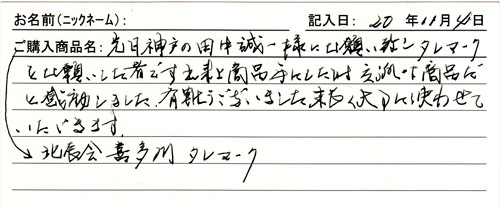 お名前(ニックネーム): 記入日: 20 年 11 月 4 日
ご購入商品名: 先日神戸の田中誠一様にお願い致しタレマーク
とお願いした者です出来上商品手にした時 立派な商品だ
と感動しました。有難うございました末長く大切に使わせて
いただきます。
→北辰会 喜多川 タレマーク